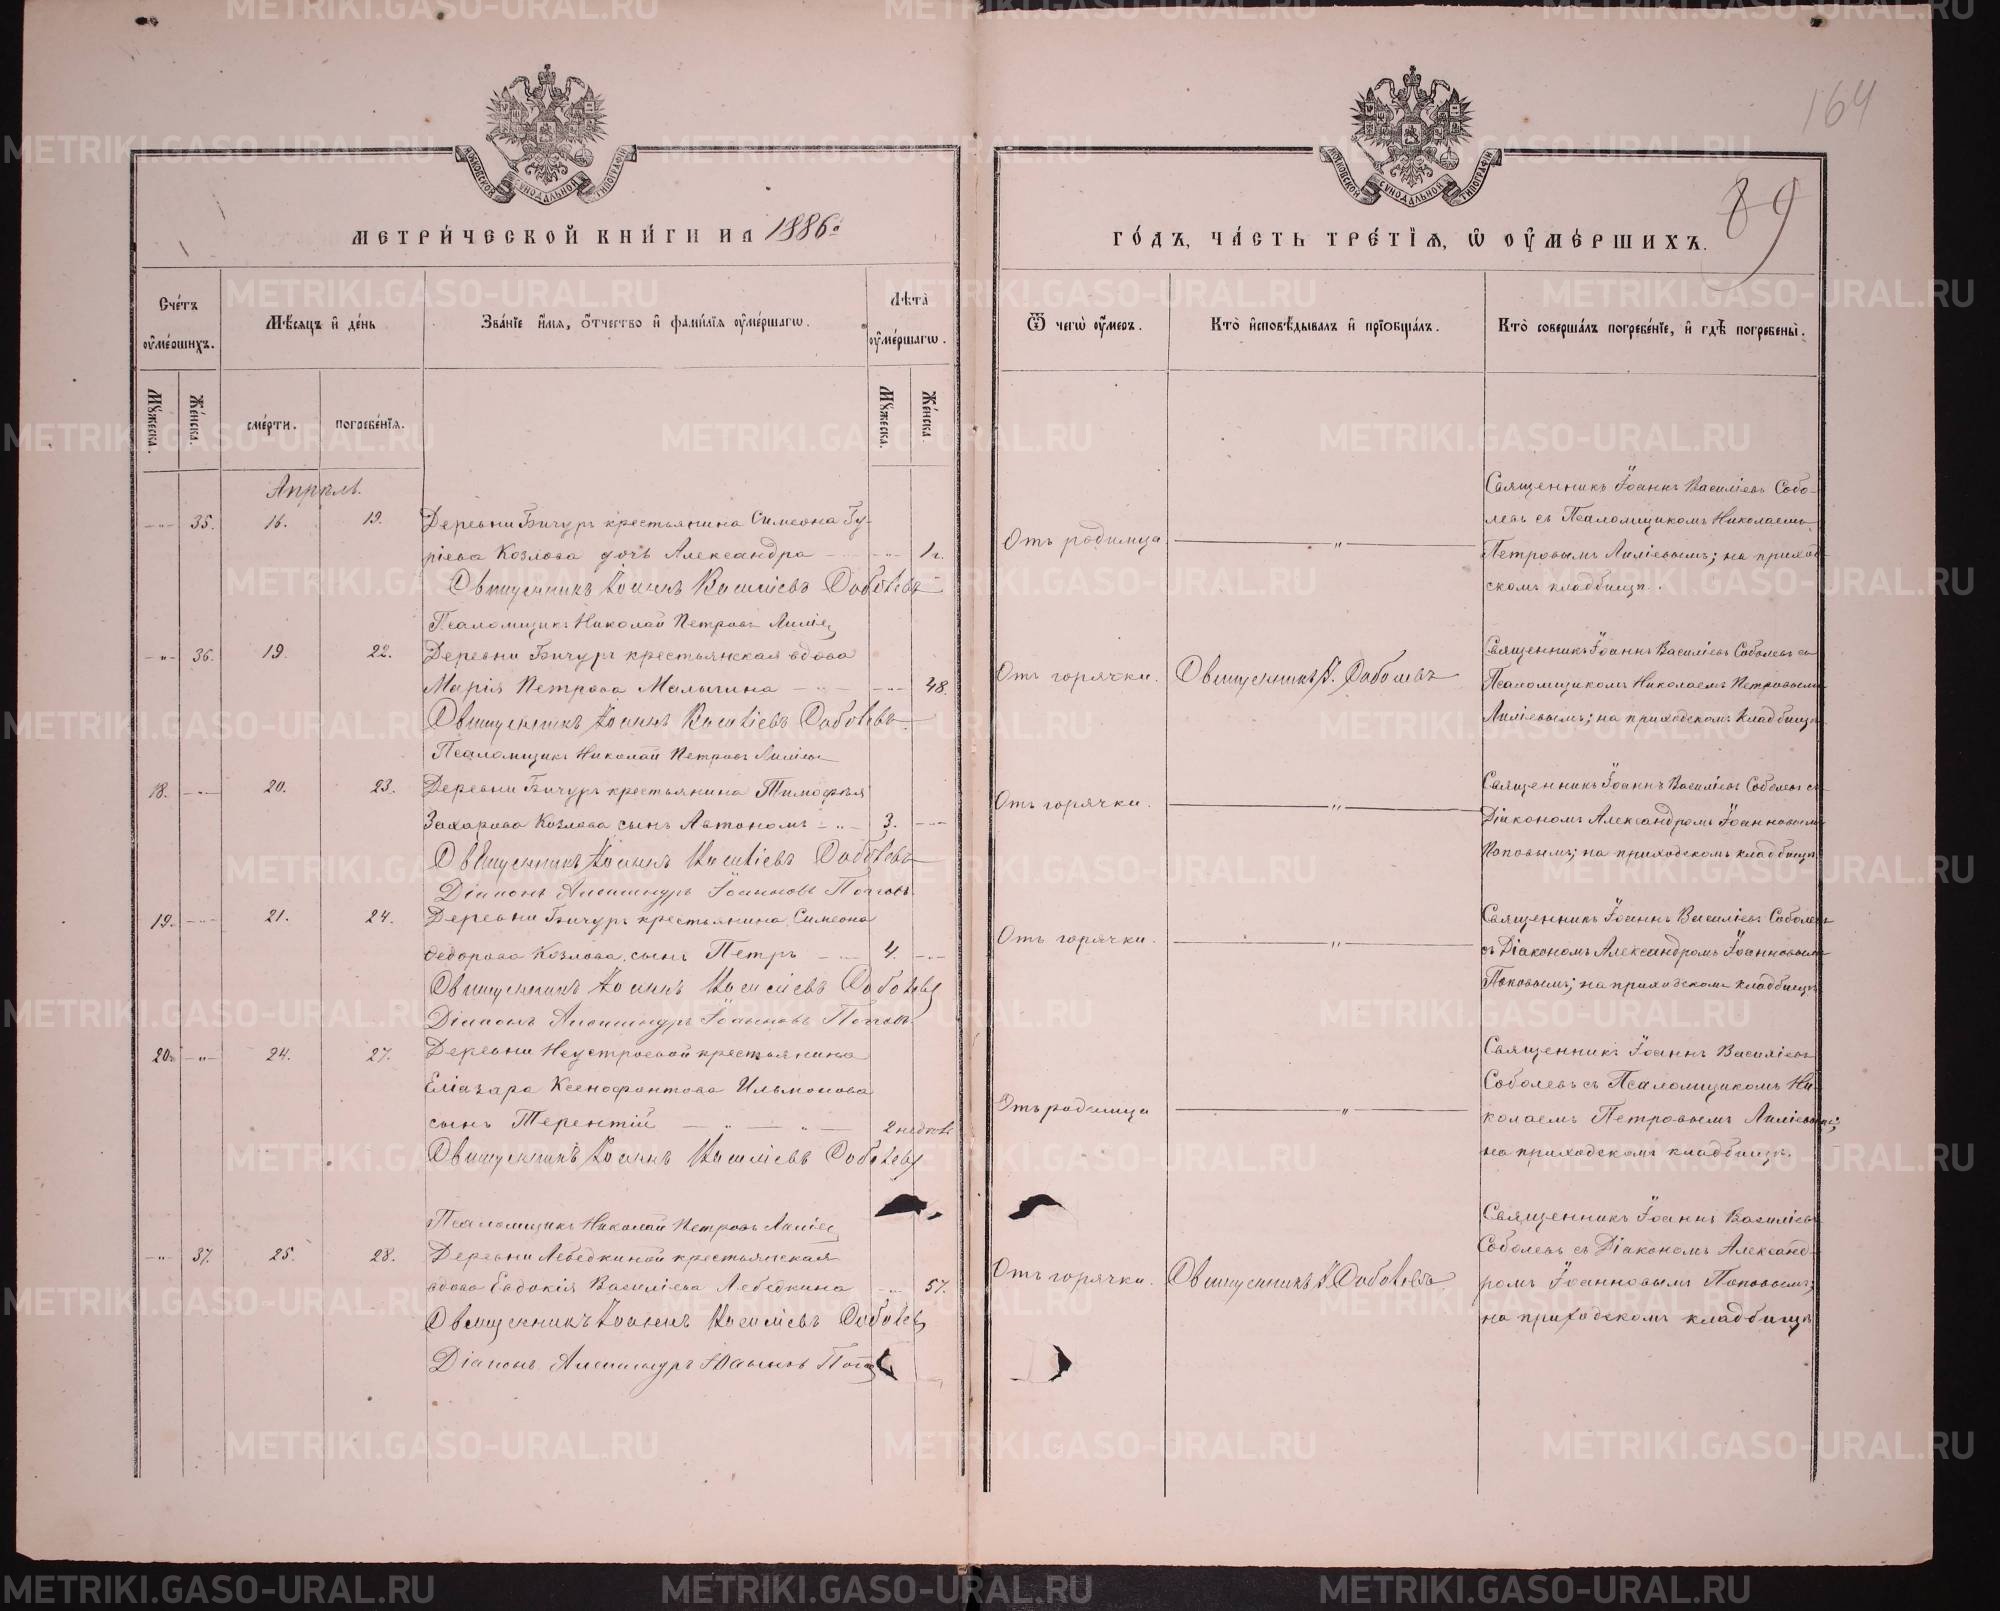 164
89
МОСКОВСКОЙ СУНОДАЛЬНОЙ ТИПОГРАФІИ
МОСКОВСКОЙ СУНОДАЛЬНОЙ ТИПОГРАФІИ
МЕТРИ́ЧЕСКОЙ КНИ́ГИ НА 1886й
ГО́ДЪ, ЧА́СТЬ ТРЕ́ТІЯ, Ѿ ОУ҆МЕ́РШИХЪ.
Сче́тъ оу҆ме́ршихъ.
Мѣ́сяцъ и҆ де́нь
Зва́нїе и҆́мя, ѻ҆́тчество и҆ фами́лїя оу҆ме́ршагѡ.
Лѣ́та оу҆ме́ршагѡ.
Ѿ чегѡ̀ оу҆́меръ.
Кто̀ и҆сповѣ́дывалъ и҆ прїѡбща́лъ.
Кто̀ соверша́лъ погребе́нїе, и҆ гдѣ̀ погребены̀.
Мꙋ́жеска.
Же́нска.
сме́рти.
погребе́нїя.
Мꙋ́жеска.
Же́нска.
Апрѣль.
-"- 35. 16. 19. Деревни Бичуръ крестьянина Симеона Гу-
ріева Козлова дочь Александра -"- 1 г.
Священникъ Іоаннъ Василіевъ Соболевъ
Псаломщикъ Николай Петровъ Лиліев
Отъ родимца
"
Священникъ Іоаннъ Василіевъ Собо-
левъ съ Псаломщикомъ Николаемъ
Петровымъ Лиліевымъ; на приход-
скомъ кладбищѣ.
-"- 36. 19. 22. Деревни Бичуръ крестьянская вдова
Марія Петрова Малыгина -"- 48.
Священникъ Іоаннъ Василіевъ Соболевъ
Псаломщикъ Николай Петровъ Лиліевъ
Отъ горячки.
Священникъ І. Соболевъ
Священникъ Іоаннъ Василіевъ Соболевъ съ
Псаломщикомъ Николаемъ Петровымъ
Лиліевымъ; на приходскомъ кладбищѣ
18. -"- 20. 23. Деревни Бичуръ крестьянина Тимофея
Захарова Козлова сынъ Автономъ -"- 3. -"-
Священникъ Іоаннъ Василіевъ Соболевъ
Діаконъ Александръ Іоанновъ Поповъ
Отъ горячки.
"
Священникъ Іоаннъ Василіевъ Соболевъ съ
Діакономъ Александромъ Іоанновымъ
Поповымъ; на приходскомъ кладбищѣ
19. -"- 21. 24. Деревни Бичуръ крестьянина Симеона
Федорова Козлова сынъ Петръ 4. -"-
Священникъ Іоаннъ Василіевъ Соболевъ
Діаконъ Александръ Іоанновъ Поповъ
Отъ горячки.
"
Священникъ Іоаннъ Василіевъ Соболевъ
съ Діакономъ Александромъ Іоанновымъ
Поповымъ; на приходскомъ кладбищѣ
20. -"- 24. 27. Деревни Неустроевой крестьянина
Еліазара Ксенофонтова Ильмонова
сынъ Терентій 2 недель
Священникъ Іоаннъ Василіевъ Соболевъ
Псаломщикъ Николай Петровъ Лиліев
Отъ родимца
"
Священникъ Іоаннъ Василіевъ
Соболевъ съ Псаломщикомъ Ни-
колаемъ Петровымъ Лиліевымъ;
на приходскомъ кладбищѣ.
-"- 37. 25. 28. Деревни Лебедкиной крестьянская
вдова Евдокія Василіева Лебедкина -"- 57.
Священникъ Іоаннъ Василіевъ Соболев
Діаконъ Александръ Іоанновъ Попов
Отъ горячки.
Священникъ І. Соболевъ
Священникъ Іоаннъ Василіевъ
Соболевъ съ Діакономъ Александ-
ромъ Іоанновымъ Поповымъ;
на приходскомъ кладбищѣ
METRIKI.GASO-URAL.RU